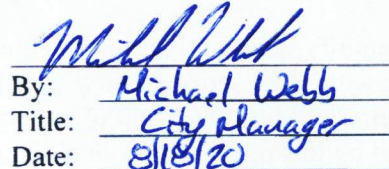 Michael Webb
By: Michael Webb
Title: City Manager
Date: 8/18/20